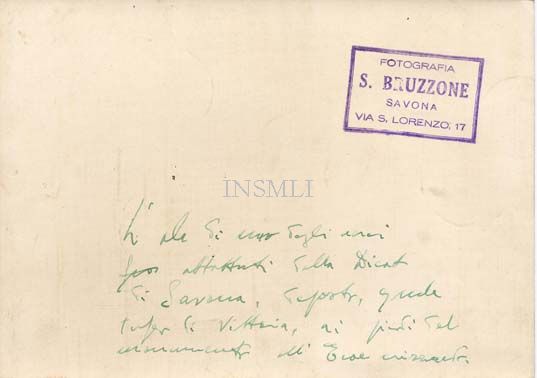 FOTOGRAFIA
S. BRUZZONE
SAVONA
VIA S. LORENZO, 17
INSMLI
ala di uno degli aerei
abbattuti dalla Dicat
di Savona, deposta, quale
trofeo di Vittoria, ai piedi del
monumento all'Eroe nizzardo.